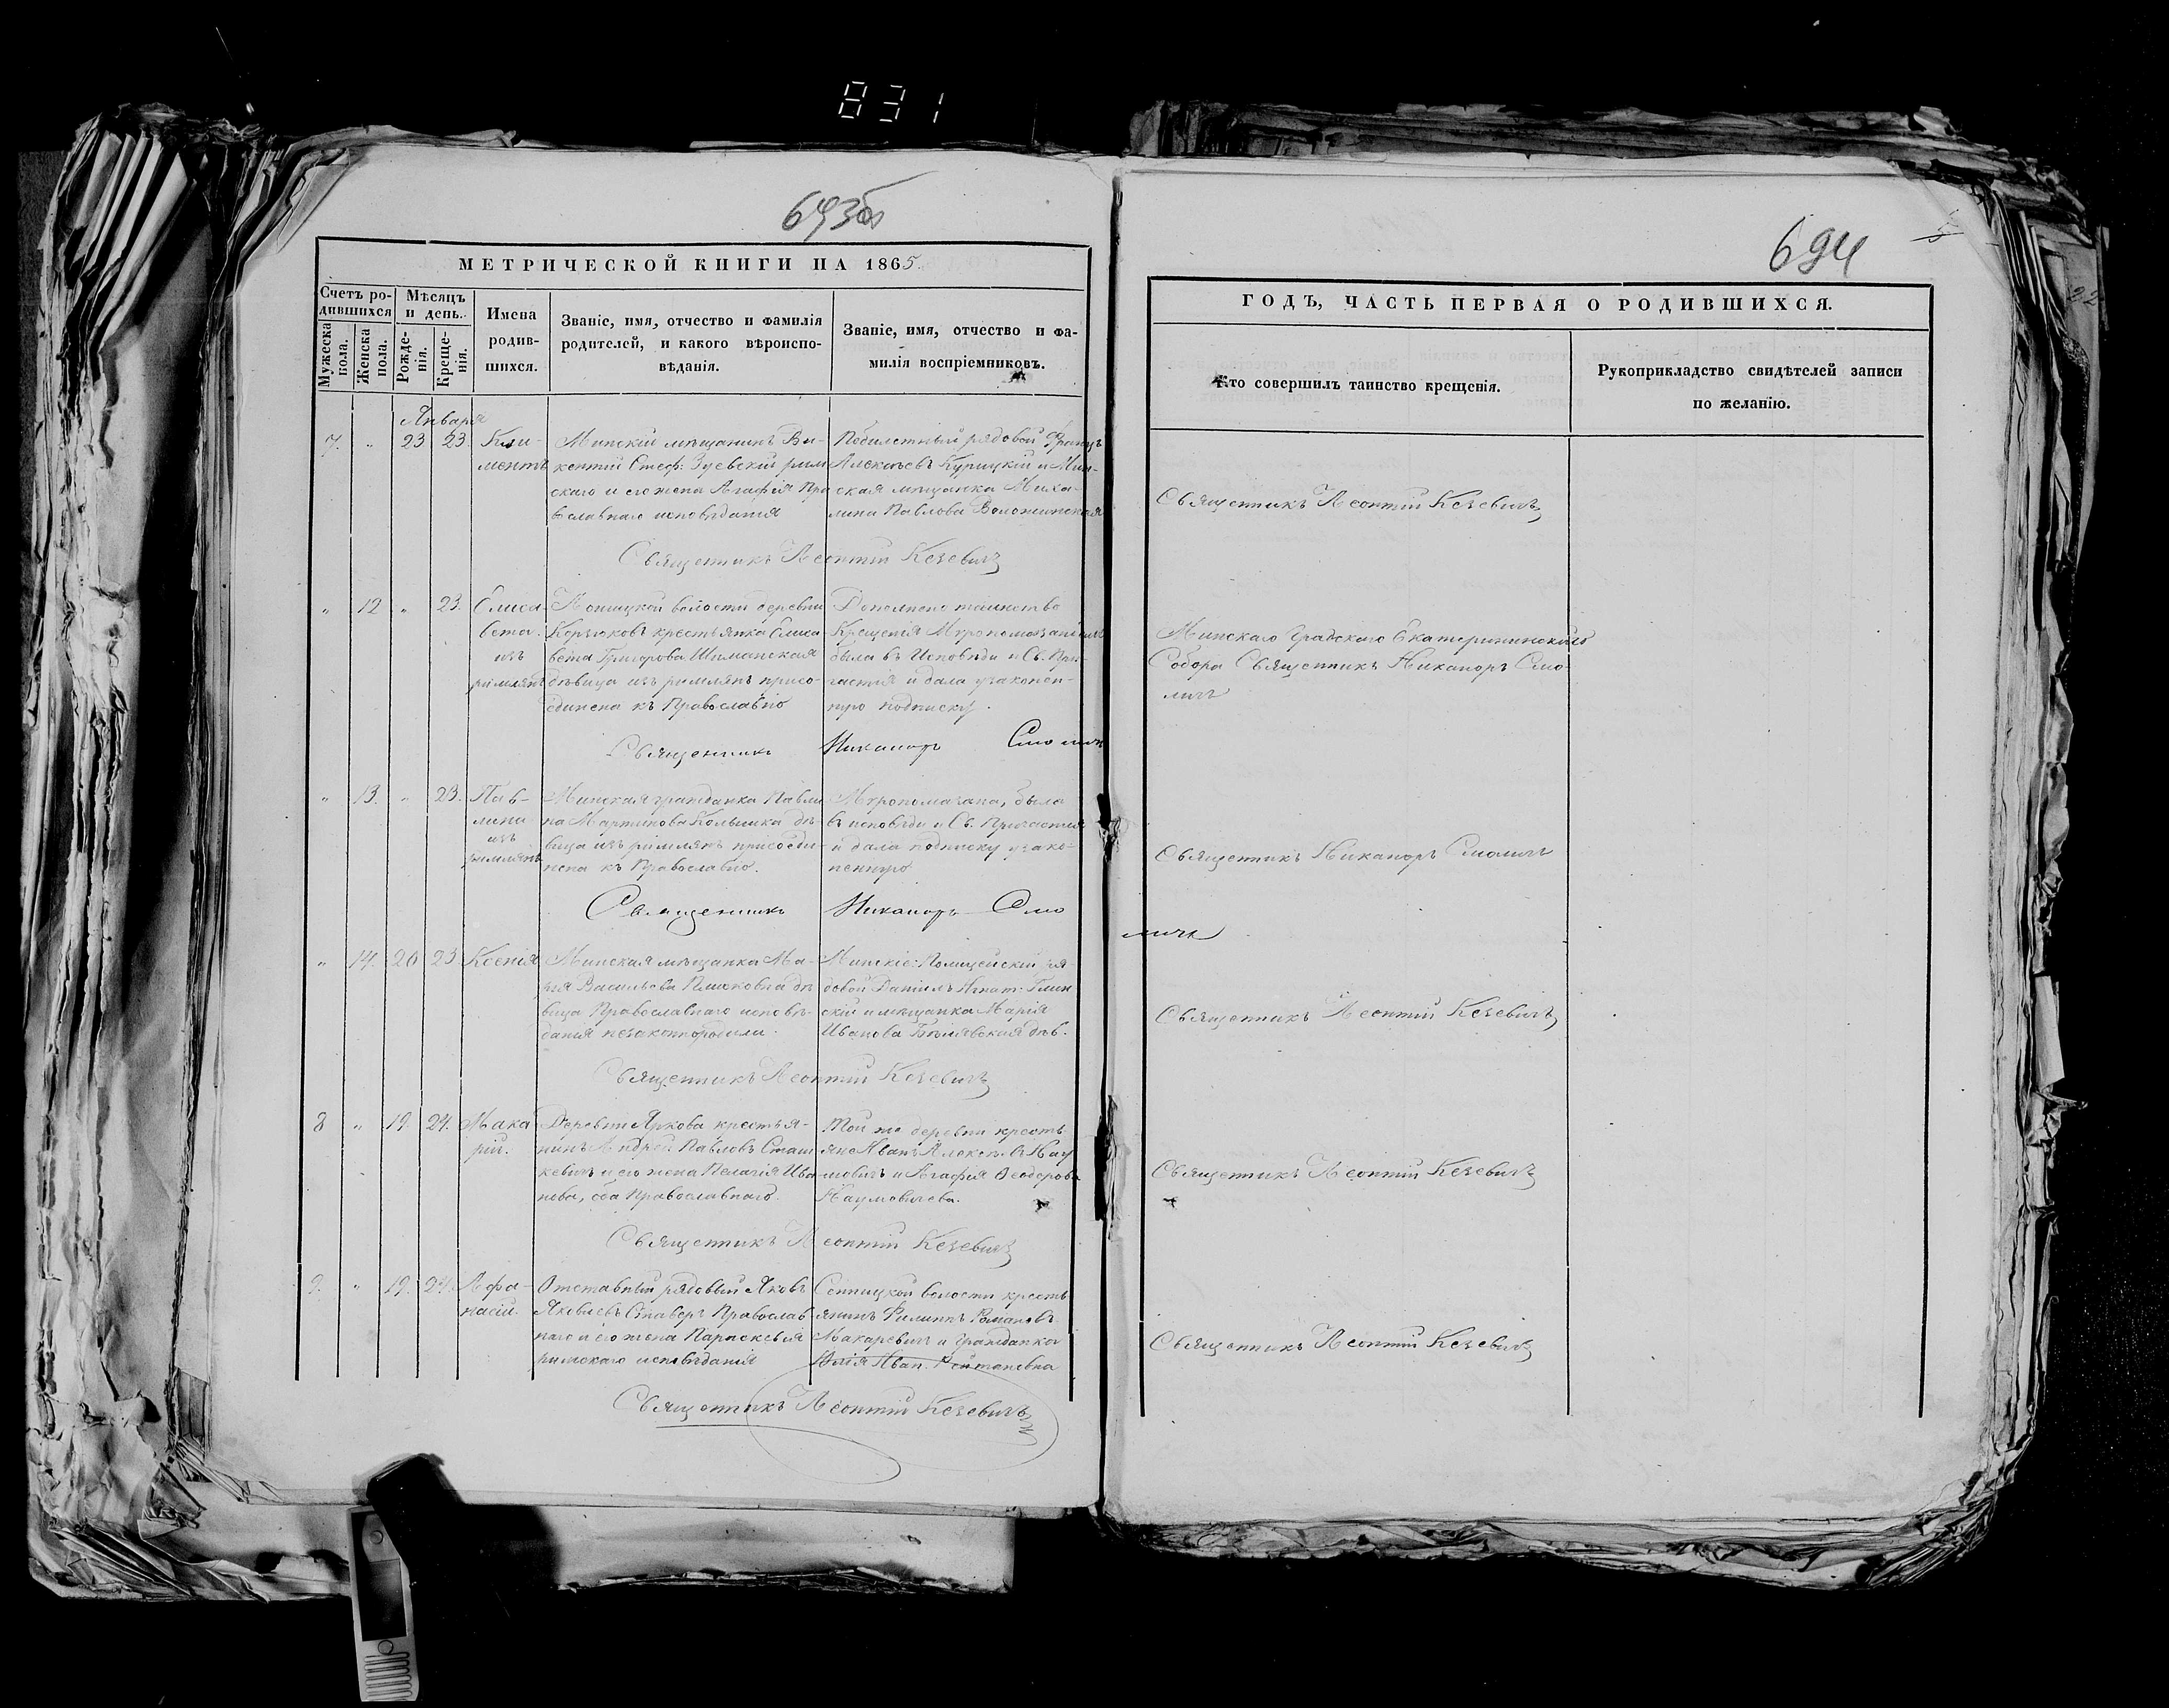 831
693об
694
5
МЕТРИЧЕСКОЙ КНИГИ НА 1865.
Счетъ ро-
дившихся
Мужеска
пола.
Женска
пола.
Мѣсяцъ
и день.
Рожде-
нія.
Креще-
нія.
Имена
родив-
шихся.
Званіе, имя, отчество и фамилія
родителей, и какого вѣроиспо-
вѣданія.
Званіе, имя, отчество и фа-
милія воспріемниковъ.
ГОДЪ, ЧАСТЬ ПЕРВАЯ О РОДИВШИХСЯ.
Кто совершилъ таинство крещенія.
Рукоприкладство свидѣтелей записи
по желанію.
Января
7. " 23 23.
Кли-
ментъ
Минскій мѣщанинъ Ви-
кентій Стеф: Зуевскій рим
скаго и его жена Агафія Пра
вославнаго исповѣданія
Побилетный рядовой Францъ
Алексѣевъ Курицкій и Мин-
ская мѣщанка Миха-
лина Павлова Воложинская
Священникъ Леонтій Кезевичъ
Священникъ Леонтій Кезевичъ
" 12 " 23.
Елиса-
вета.
изъ
римлянъ
волости деревни
крестьянка Елиса
вета Григорова Шиманская
дѣвица изъ римлянъ присо-
единена къ Православію
Дополнено таинство
Крещенія Мѵропомазаніемъ
была въ Исповѣди и Св. При-
частія и дала узаконен-
ную подписку.
Минскаго Градскаго Екатерининскаго
Собора Священникъ Никаноръ Смо-
личъ
Священникъ Никаноръ Смоличъ
" 13. " 23.
Пав-
лина
изъ
римлянъ
Минская гражданка Павли
на Мартинова дѣ-
вица изъ римлянъ присоеди-
нена къ Православію.
Мѵропомазана, была
въ исповѣди и Св. Причастія
и дала подписку узако-
ненную
Священникъ Никаноръ Смоличъ
Священникъ Никаноръ Смо
личъ
" 14. 20 23.
Ксенія
Минская мѣщанка Ма-
рія Васильева дѣ
вица Православнаго исповѣ-
данія незаконнородила.
Минскіе: Полицейскій ря
довой Даніилъ Игнат: Глин
скій и мѣщанка Марія
Иванова Бѣлявская дѣв.
Священникъ Леонтій Кезевичъ
Священникъ Леонтій Кезевичъ
8 " 19. 24.
Мака
рій.
Деревни Яркова крестья-
нинъ Андрей Павловъ Сташ
кевичъ и его жена Пелагія Ива
нова, оба Православнаго.
Той же деревни кресть
яне Иванъ Алексѣевъ Нау
мовичъ и Агафія Ѳеодорова
Наумовичева.
Священникъ Леонтій Кезевичъ
Священникъ Леонтій Кезевичъ
9. " 19. 24.
Афа-
насій.
Отставный рядовый Яковъ
Яковлевъ Ставеръ Православ
наго и его жена Параскевія
римскаго исповѣданія
Сенницкой волости кресть
янинъ Филиппъ Романовъ
Макаревичъ и гражданка
Юлія Иван.
Священникъ Леонтій Кезевичъ
Священникъ Леонтій Кезевичъ